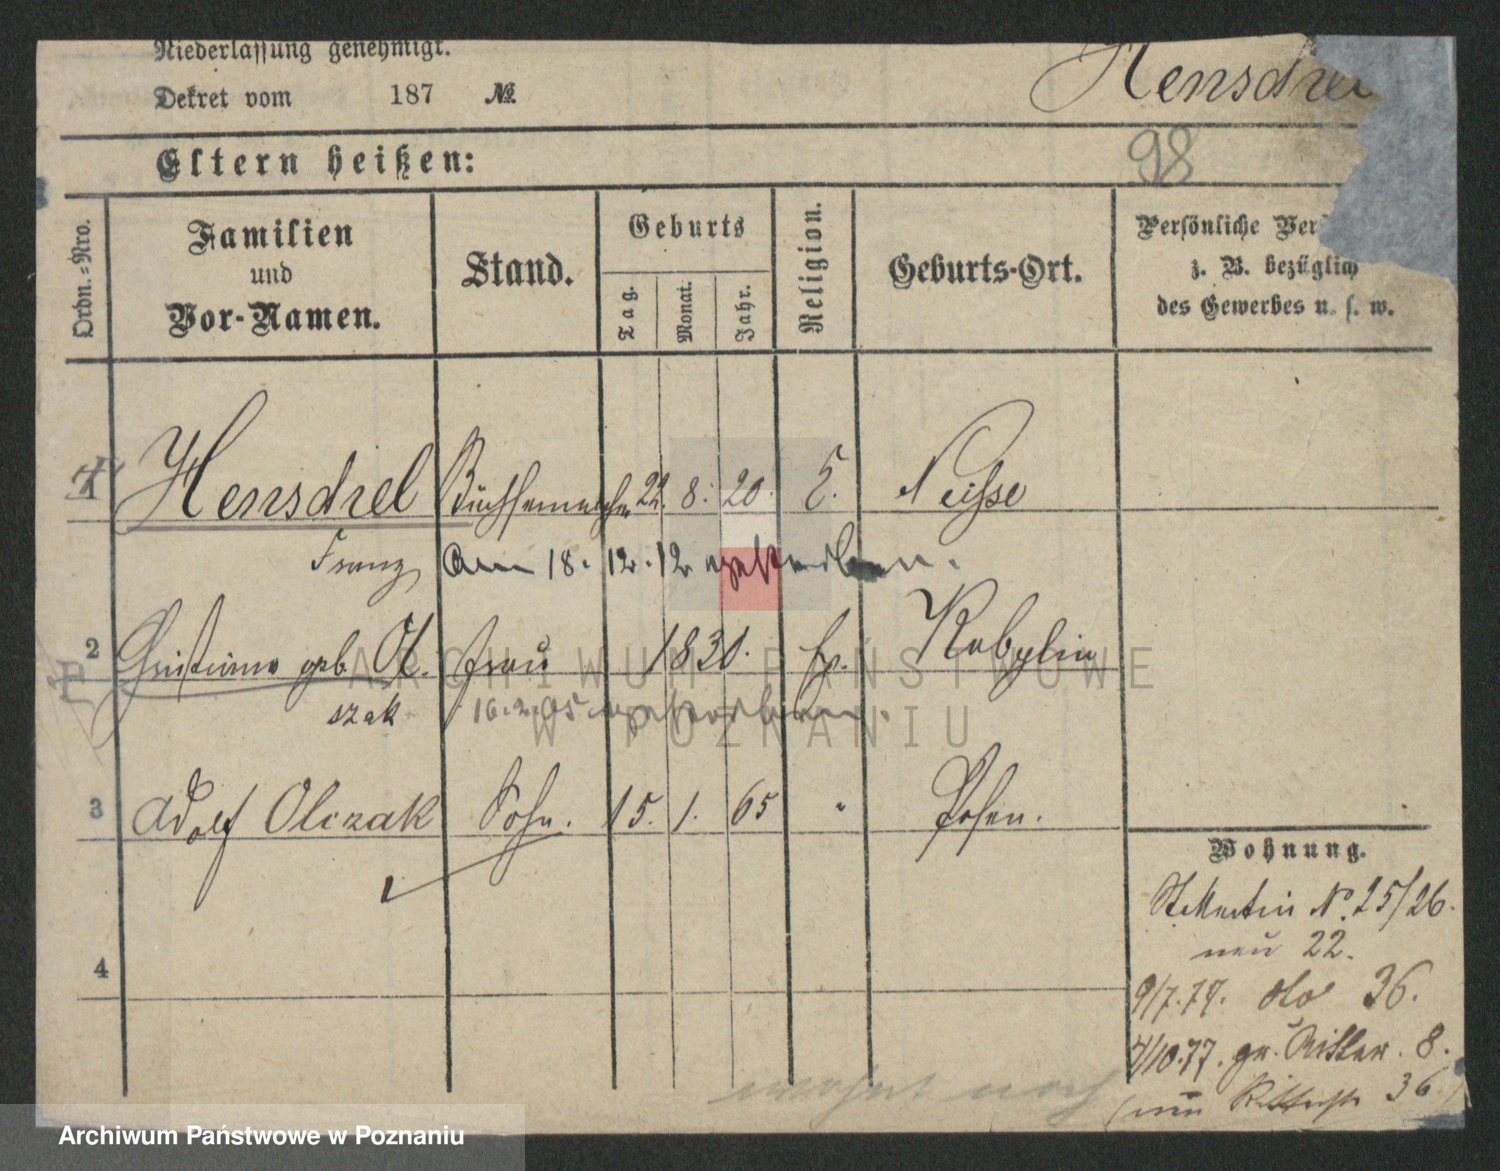 Niederlassung genehmigt.
Dekret vom 187 №
Hensch
98
Eltern heißen:
Ordn.=Nro.
Familien
und
Vor-Namen.
Stand.
Geburts
Tag.
Monat.
Jahr.
Religion.
Geburts-Ort.
Persönliche Ver
z. B. bezüglich
des Gewerbes u. s. w.
Henschel Büchsenmacher 22. 8. 20. E. Neisse
Franz am 18. 12. 12 gestorben.
2 Christiane geb. Ol. Frau 1830. Ep. Kobylin
szak 16.2.05 gestorben.
3 Adolf Olczak Sohn. 15. 1. 65 " Posen.
Wohnung.
St. Martin No. 25/26.
neu 22.
4
9/7.77. dto 36.
4/10.77. gr. Ritter. 8.
wohnt noch
(nun Ritterstr 36)
ARCHIWUM PAŃSTWOWE
W POZNANIU
Archiwum Państwowe w Poznaniu